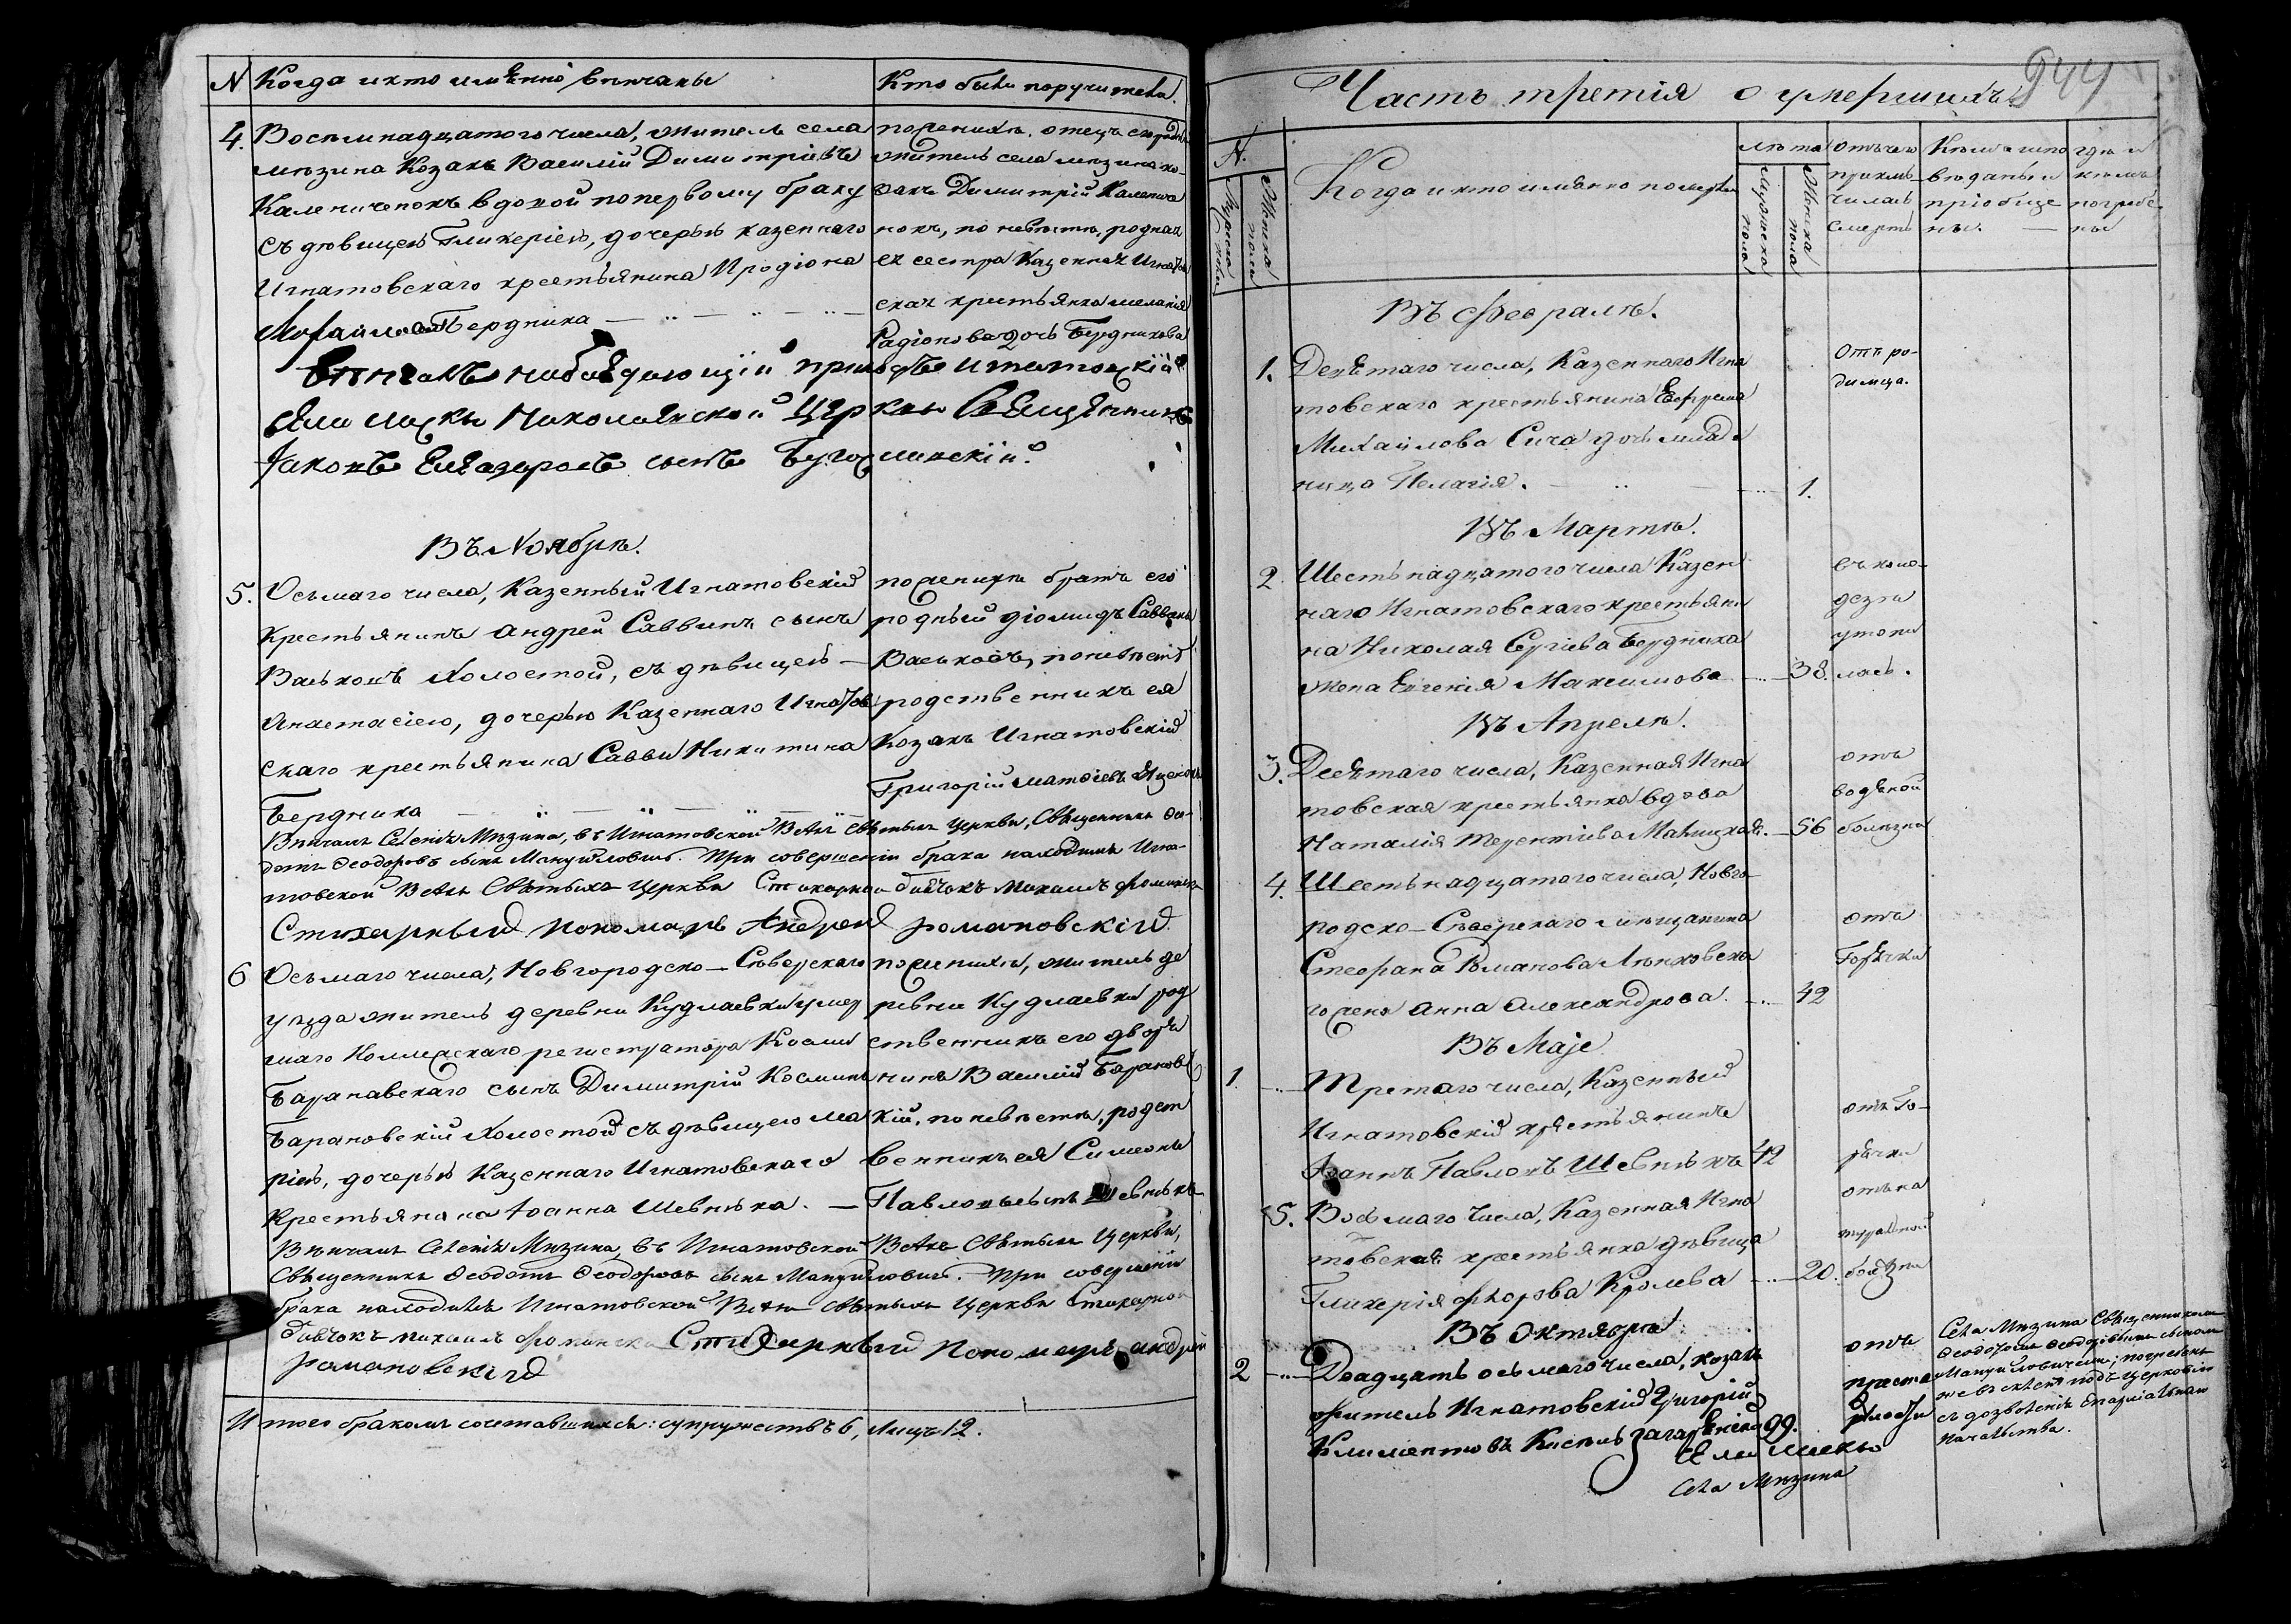 N Когда и кто имѣнно вѣнчаны
Кто были поручители.
4. Восемнадцатого числа, житель села
Мѣзина Козакъ Василій Димитріевъ
Калениченокъ вдовой поперьвому браку
съ дѣвицею Гликеріею, дочерью казенного
Игнатовскаго крестьянина Иродіона
Бердника
по женихѣ. отецъ его родный
житель села Мѣзина ко-
закъ Димитрій Калениче
нокъ, по невѣстѣ, родная
ея сестра Казенная Игнатов
ская крестьянка Меланія
Радіонова дочь Бердникова
Николаевской Церкви Священникъ
Іаковъ Елеазаровъ сынъ
Въ Ноябрѣ.
5. Осьмаго числа, Казенный Игнатовскій
крестьянинъ Андрей Саввинъ сынъ
Васьковъ холостой, съ дѣвицею —
Анастасіею, дочерью Казеннаго Игнатов
скаго крестьянина Саввы Никитина
Бердника
по женихѣ братъ его
родный Діомидъ Саввинъ
Васьковъ, по невѣстѣ
родственникъ ея
Козакъ Игнатовскій
Григорій Матѳіевъ Яценокъ
Вѣнчалъ Селенія Мѣзина, въ Игнатовской Всѣхъ Святыхъ Церкви, Священникъ Ѳео-
дотъ Ѳеодоровъ сынъ Мануйловичъ. При совершеніи брака находился Игна-
товской Всѣхъ Святыхъ Церкви Стихарный дьячокъ Михаилъ
Стихарный пономарь Андрей Романовскій
6 Осьмаго числа, Новгородско-Сѣверскаго
уѣзда житель деревни Кудлаевки умер
шаго Коллежскаго регистратора Косьмы
Барановскаго сынъ Димитрій Косминъ
Барановскій холостой съ дѣвицею Ма
ріею, дочерью Казеннаго Игнатовскаго
Крестьянина Іоанна Шевнѣка. —
по женихѣ, житель де
ревни Кудлаевки род
ственникъ его дворя
нинъ Василій Барановс
кій, по невѣстѣ, родст
венникъ ея Симеонъ
Павловъ
Вѣнчалъ Селенія Мѣзина, въ Игнатовской Всѣхъ Святыхъ Церкви,
Священникъ Ѳеодотъ Ѳеодоровъ сынъ Мануйловичъ. При совершеніи
брака находился Игнатовской Всѣхъ Святыхъ Церкви Стихарной
дьячокъ Михаилъ Стихарный Пономарь Андрей
Романовскій
Итого бракомъ сочетавшихся: супружествъ 6, Лицъ 12.
944
Часть третія о умершихъ
N.
Мужеска пола
Женска пола
Когда и кто имѣнно померли
Лѣта
Мужеска пола
Женска пола
Отъ чего приклю чилась смерть
Кѣмъ исповѣданы и пріобще ны. —
Гдѣ и кѣмъ погребе ны
Въ Февралѣ.
1. Девятаго числа, Казеннаго Игна
товскаго крестьянина Ефрема
Михайлова Сича дочь млад
ница Пелагія. 1.
Отъ ро-
димца.
Въ Мартѣ.
2 Шестьнадцатого числа Казен
наго Игнатовскаго крестьяни
на Николая Сергіева Бердника
жена Евгенія Максимова 38.
въ коло-
дезѣ
утопи
лась.
Въ Апрелѣ.
3. Десятаго числа, Казенная Игна
товская крестьянка вдова
Наталія Терентіева 56
отъ
водяной
болѣзни
4. Шестьнадцатого числа, Новго
родско-Сѣверскаго мѣщанина
Стефана Романова
жена Анна Александрова. 42
отъ
горячки
Въ Маје
1. Третяго числа, Казенный
Игнатовскій крестьянинъ
Іоаннъ Павловъ Шевнѣкъ 42
отъ го-
рячки
5. Восьмаго числа, Казенная Игна
товская крестьянка дѣвица
Гликерія Фіорова Кролева 20.
отъ на
туральной
болѣзни
Въ Октябрѣ
2 Двадцать осьмаго числа, козакъ
житель Игнатовскій Григорій
Климентовъ 99.
отъ
Села Мѣзина Священникомъ
Ѳеодотомъ Ѳеодоровымъ сыномъ
Мануйловичемъ; погребенъ
съ дозволенія Епархіальнаго
начальства.
Села Мѣзина